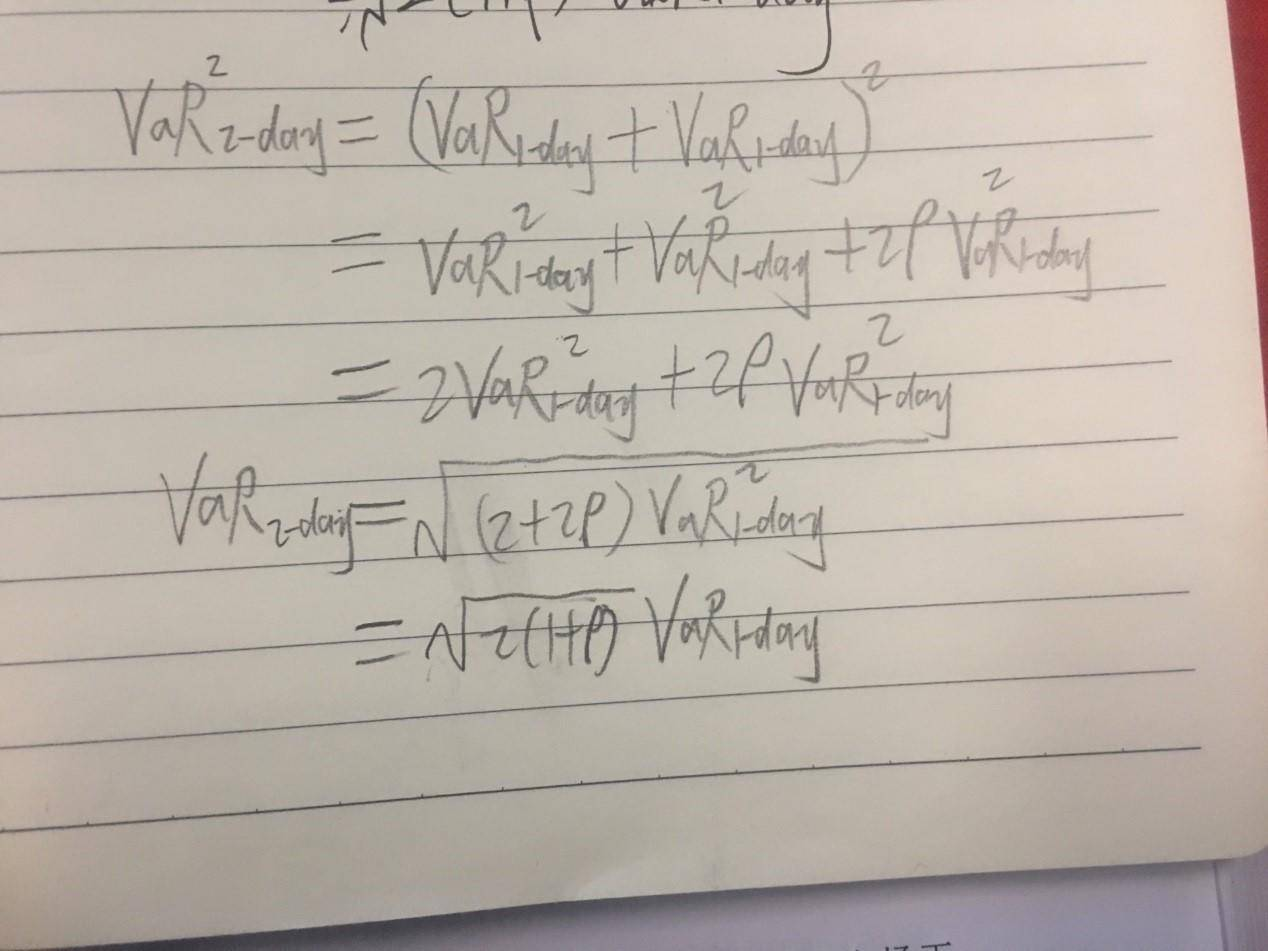 VaR²₂₋day = (VaR₁₋day + VaR₁₋day)²
= VaR²₁₋day + VaR²₁₋day + 2ρ VaR²₁₋day
= 2VaR²₁₋day + 2ρ VaR²₁₋day
VaR₂₋day = √(2+2ρ) VaR²₁₋day
= √2(1+ρ) VaR₁₋day